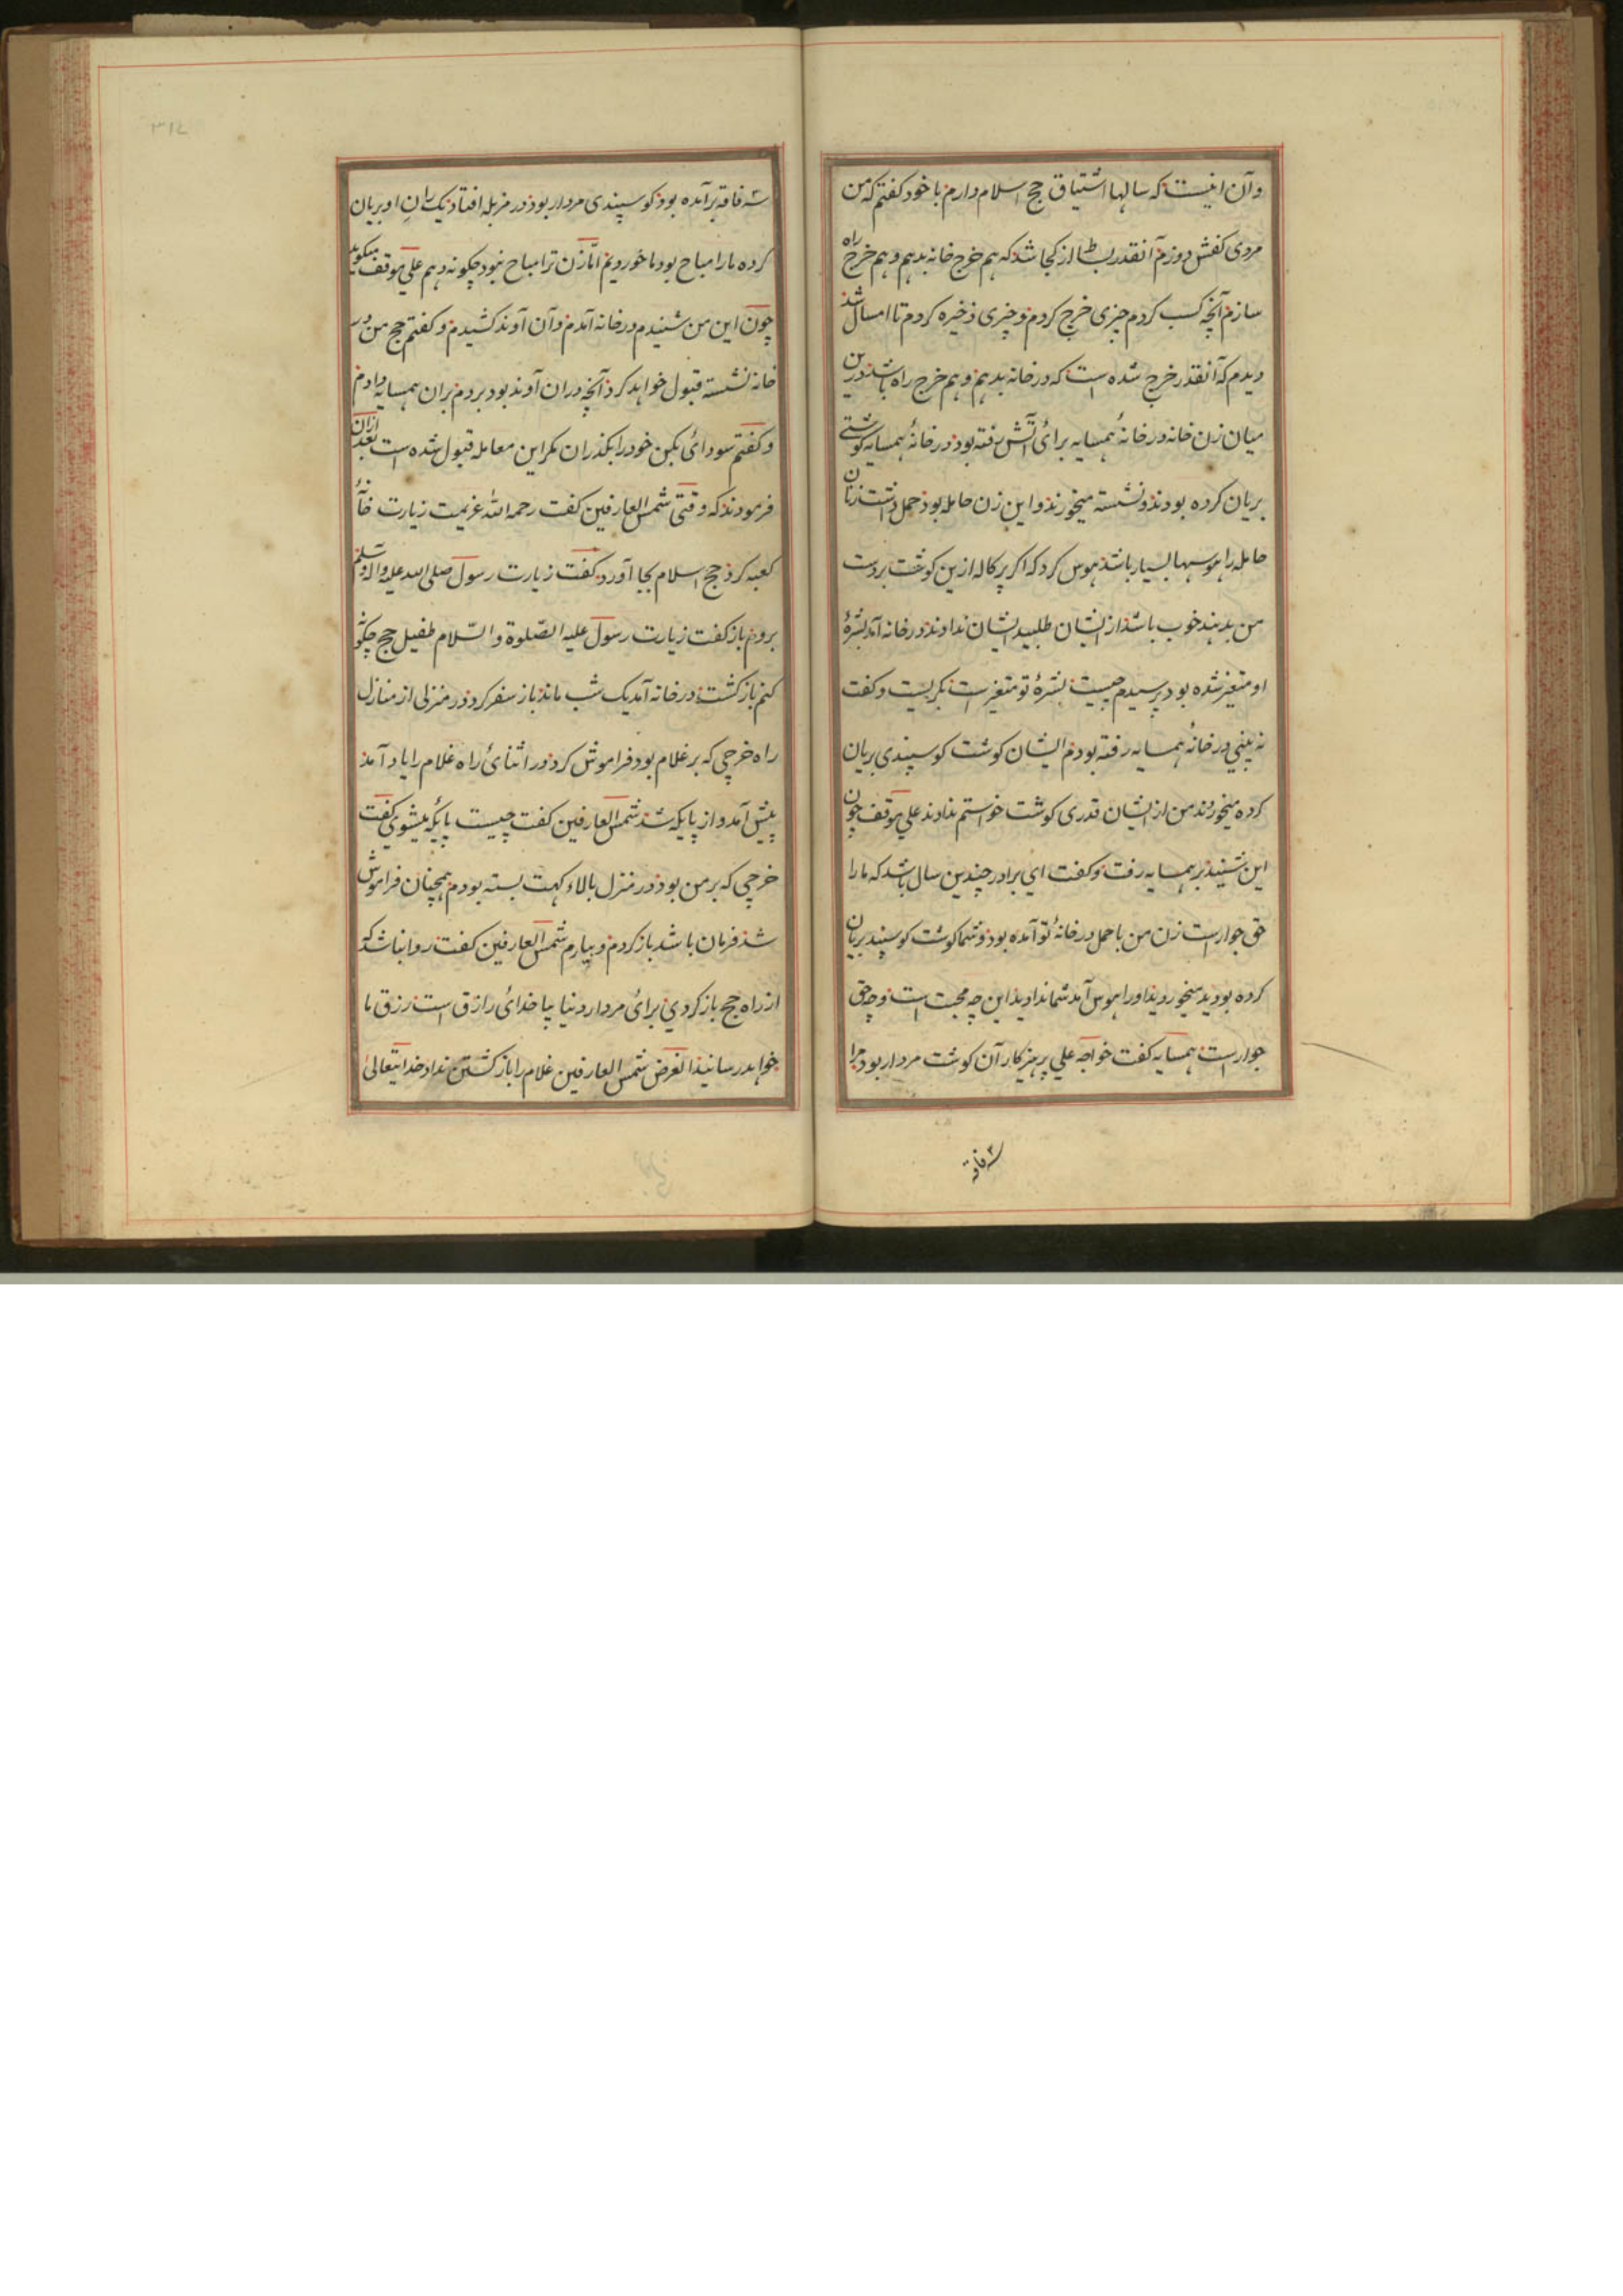 وآن اینست که سالها اشتیاق حج اسلام دارم با خود کفتم که من
مردی کفش دوزم آنقدر بساط از کجا شد که هم خرج خانه بدهم و هم خرج راه
سازم آنچه کسب کردم چیزی خرج کردم و چیزی ذخیره کردم تا امسال شد
دیدم که آنقدر خرج شده است که در خانه بدهم و هم خرج راه باشد درین
میان زن خانه در خانهٔ همسایه برائ آتش رفته بود در خانهٔ همسایه کوشتے
بریان کرده بودند و نشسته میخورند و این زن حامله بود حمل داشت زنان
حامله را هوسها بسیار باشد هوس کرد که اکر پرکاله ازین کوشت بر دست
من بدهند خوب باشد از ایشان طلبید ایشان ندادند در خانه آمد بشرهٔ
او متغیر شده بود پرسیدم چیست بشرهٔ تو متغیر است بکریست و کفت
نه بینی در خانهٔ همسایه رفته بودم ایشان کوشت کوسپندی بریان
کرده میخورند من از ایشان قدری کوشت خواستم ندادند علی موقف چون
این شنید بر همسایه رفت و کفت ای برادر چندین سال باشد که ما را
حق جوار است زن من با حمل در خانهٔ تو آمده بود و شما کوشت کوسپند بریان
کرده بودید میخوردید او را هوس آمد شما ندادید این چه محبت است و چه حق
جوار است همسایه کفت خواجه علی پرهیزکار آن کوشت مردار بود مرا
سه فاقه
۳۱۷
سه فاقه برآمده بود کوسپندی مردار بود در مزبله افتاد یک ران او بریان
کرده ما را مباح بود ما خوردیم امّا زن ترا مباح نبود چکونه دهم علی موقف میکوید
چون این من شنیدم در خانه آمدم و آن آوند کشیدم و کفتم حج من در
خانه نشسته قبول خواهد کرد آنچه در ان آوند بود بردم بران همسایه دادم
و کفتم سودائ بکن خود را بکذران مکر این معامله قبول شده است بعد ازان
فرمودند که وقتی شمس العارفین کفت رحمه الله عزیمت زیارت خانهٔ
کعبه کرد حج اسلام بجا آورد کفت زیارت رسول صلی الله علیه واله وسلم
بروم باز کفت زیارت رسول علیه الصّلوة و السّلام طفیل حج چکونه
کنم باز کشت در خانه آمد یک شب ماند باز سفر کرد در منزلی از منازل
راه خرچی که بر غلام بود فراموش کرد در اثنائ راه غلام را یاد آمد
پیش آمد و از پایکه شد شمس العارفین کفت چیست پایکه میشوی کفت
خرچی که بر من بود در منزل بالاء کهت بسته بودم همچنان فراموش
شد فرمان باشد باز کردم و بیارم شمس العارفین کفت روا نباشد که
از راه حج باز کردی برائ مردار دنیا بیا خدائ رازق است رزق ما
خواهد رسانید الغرض شمس العارفین غلام را باز کشتن نداد خدایتعالیٰ